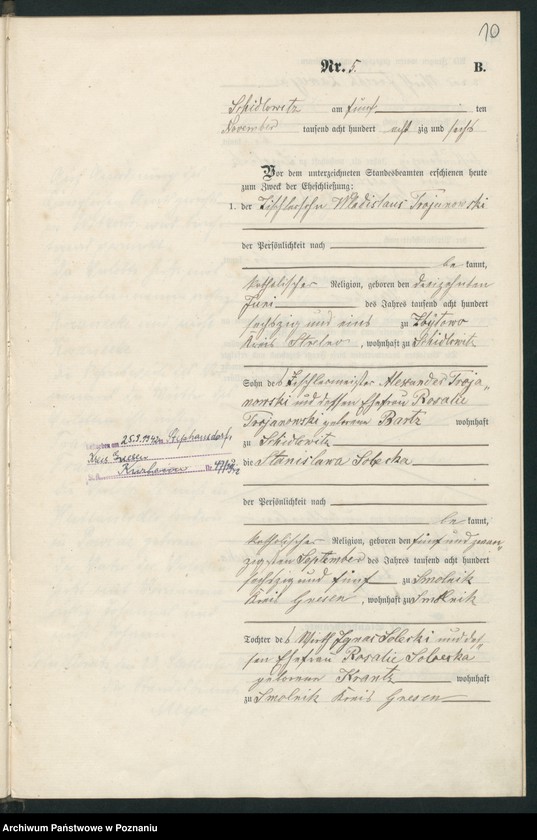 10
Nr. 5. B.
Schidlowitz am fünf ten
November tausend acht hundert acht zig und sechs
Vor dem unterzeichneten Standesbeamten erschienen heute
zum Zweck der Eheschließung:
1. der Tischlersohn Wladislaus Trojanowski
der Persönlichkeit nach
be kannt,
katholischer Religion, geboren den dreizehnten
Juni des Jahres tausend acht hundert
sechszig und eins zu Zbytowo
Kreis Strelno, wohnhaft zu Schidlowitz
Sohn des Tischlermeister Alexander Troja-
nowski und dessen Ehefrau Rosalie
Trojanowski geborene Bartz wohnhaft
zu Schidlowitz
die Stanislawa Sobecka
der Persönlichkeit nach
be kannt,
katholischer Religion, geboren den fünf und zwan-
zigsten September des Jahres tausend acht hundert
sechszig und fünf zu Smolnik
Kreis Gnesen, wohnhaft zu Smolnik
Tochter des Wirth Ignac Sobecki und des-
sen Ehefrau Rosalie Sobecka
geborene Krantz wohnhaft
zu Smolnik Kreis Gnesen
am 25.9.1942 in Stephansdorf
Kreis Gnesen
Nr.
Archiwum Państwowe w Poznaniu